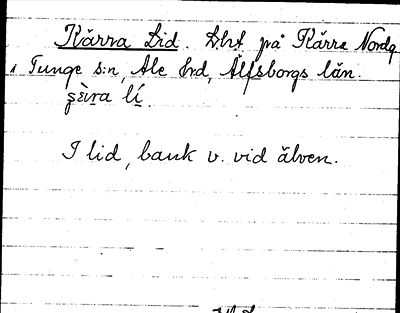 Kärra Lid. Lht på Kärra Nordg.
i Tunge s:n, Ale hd, Älfsborgs län.
lí.
I lid, bank v. vid älven.